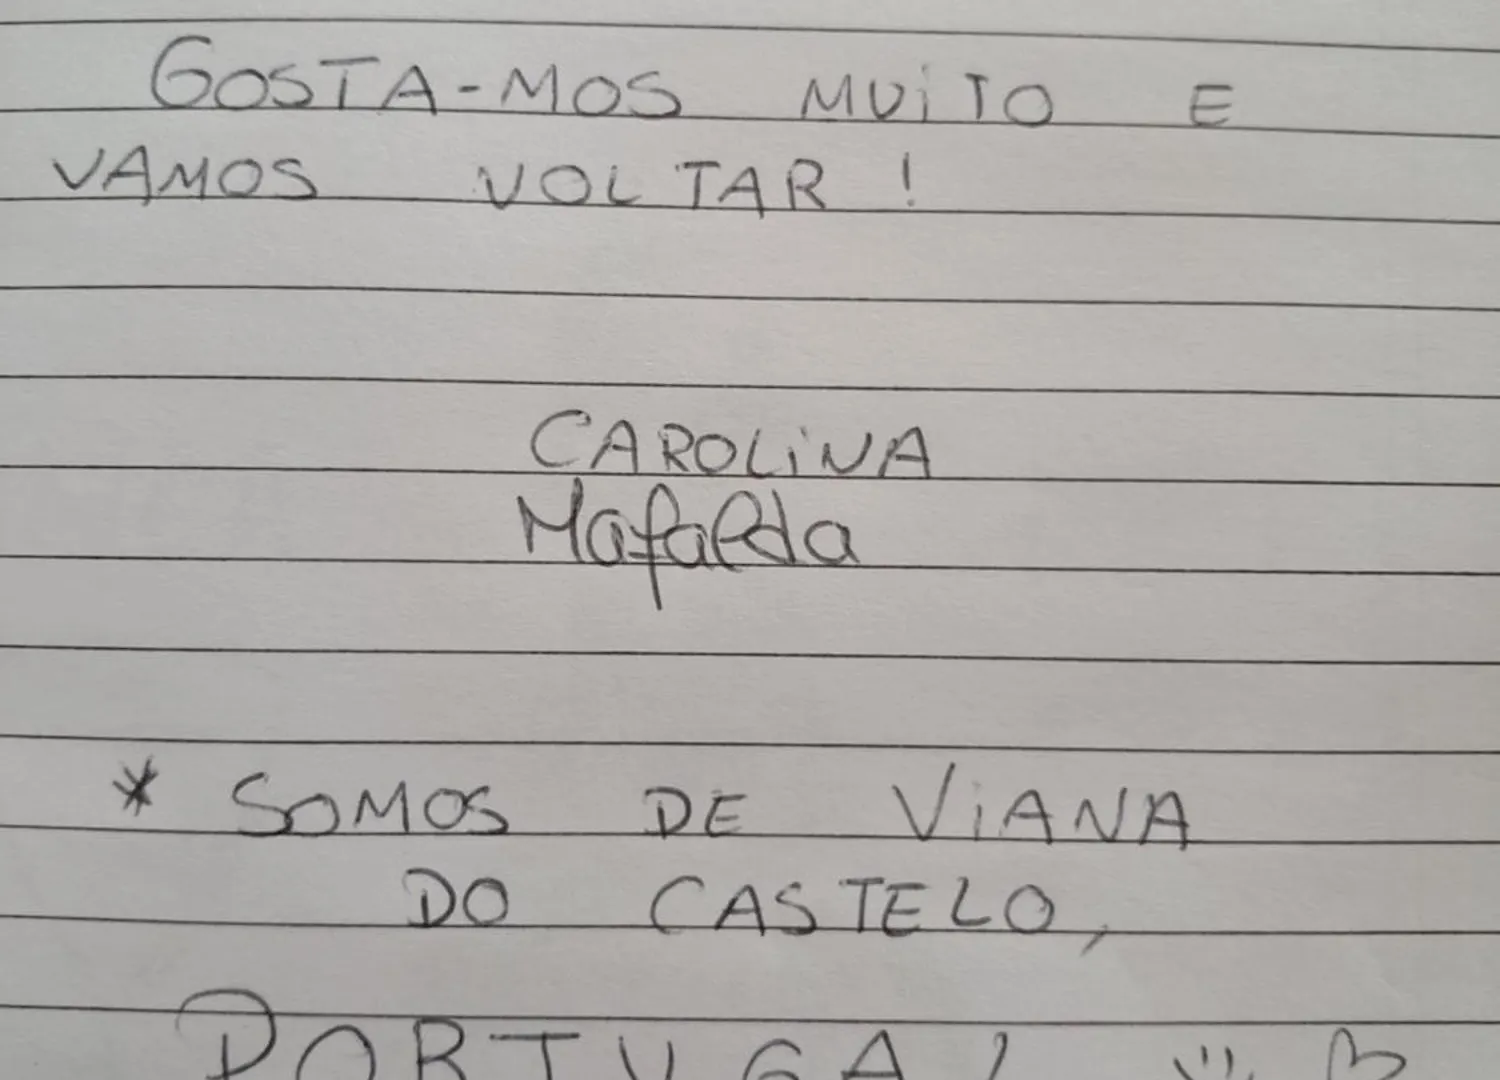 GOSTA-MOS MUITO E
VAMOS VOLTAR !
CAROLINA
Mafalda
* SOMOS DE VIANA
DO CASTELO,
PORTUGAL